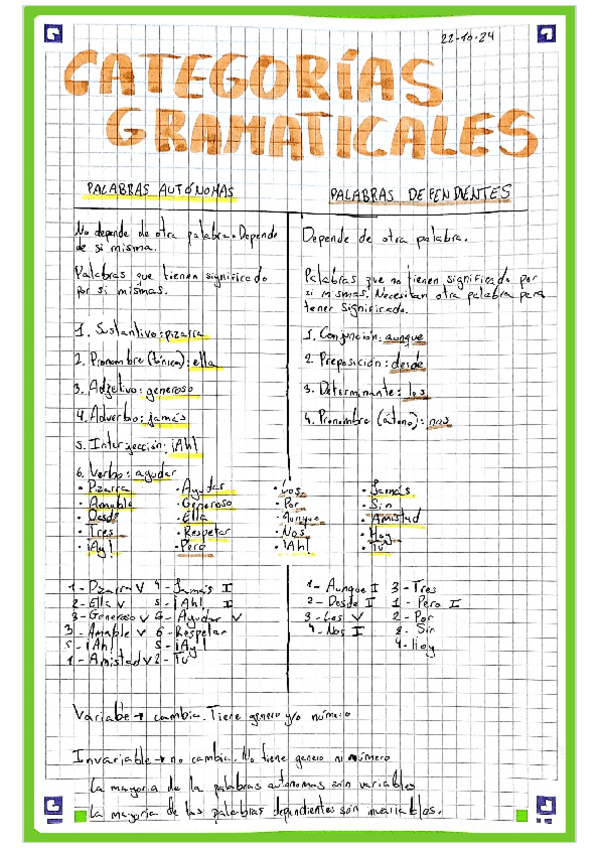 22-10-24
CATEGORÍAS
GRAMATICALES
PALABRAS AUTÓNOMAS
No depende de otra palabra. Depende
de si misma.
Palabras que tienen significado
por si mismas.
1. Sustantivo: pizarra
2. Pronombre (tónica): ella
3. Adjetivo: generoso
4. Adverbio: jamás
5. Interjección: ¡Ah!
6. Verbo: ayudar
PALABRAS DEPENDIENTES
Depende de otra palabra.
Palabras que no tienen significado por
si mismas. Necesitan otra palabra para
tener significado.
1. Conjunción: aunque
2. Preposición: desde
3. Determinante: los
4. Pronombre (átono): nos
· Pizarra
· Amable
· Desde
· Tres
· ¡Ay!
· Ayudar
· Generoso
· Ella
· Respetar
· Pero
· Los
· Por
· Aunque
· Nos
· ¡Ah!
· Jamás
· Sin
· Amistad
· Hoy
· Tu
1 - Pizarra V 4 - Jamás I
2 - Ella V 5 - ¡Ah! I
3 - Generoso V 6 - Ayudar V
3 - Amable V 6 - Respetar
5 - ¡Ah! 5 - ¡Ay!
1 - Amistad V 2 - Tu
1 - Aunque I 3 - Tres
2 - Desde I 1 - Pero I
3 - Los V 2 - Por
4 - Nos I 2 - Sin
4 - Hoy
Variable → cambia. Tiene genero y/o número
Invariable → no cambia. No tiene genero ni número
La mayoria de la palabras autónomas són variables
La mayoria de las palabras dependientes són invariables.